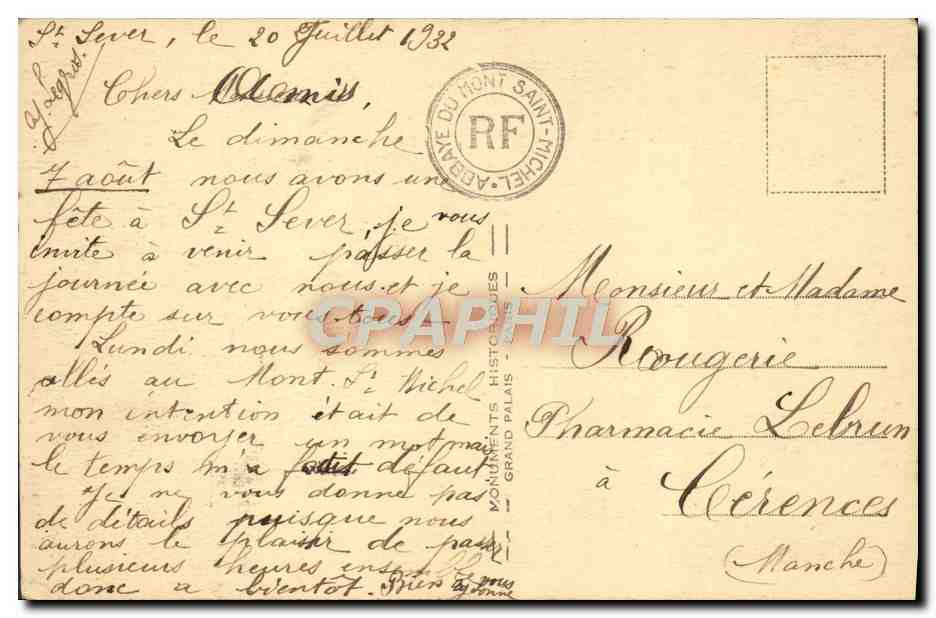 St Sever, le 20 Juillet 1932
Chers Amis,
Le dimanche
7 août nous avons une
fête à St Sever, je vous
invite à venir passer la
journée avec nous et je
compte sur vous tous
Lundi nous sommes
allés au Mont St Michel
mon intention était de
vous envoyer un mot mais
le temps m'a fait défaut
Je ne vous donne pas
de détails puisque nous
aurons le plaisir de passer
plusieurs heures
donc a bientôt. Bien
ABBAYE DU MONT SAINT-MICHEL
RF
MONUMENTS HISTORIQUES
GRAND PALAIS - PARIS
CPAPHIL
Monsieur et Madame
Rougerie
Pharmacie Lebrun
à
Cérences
(Manche)